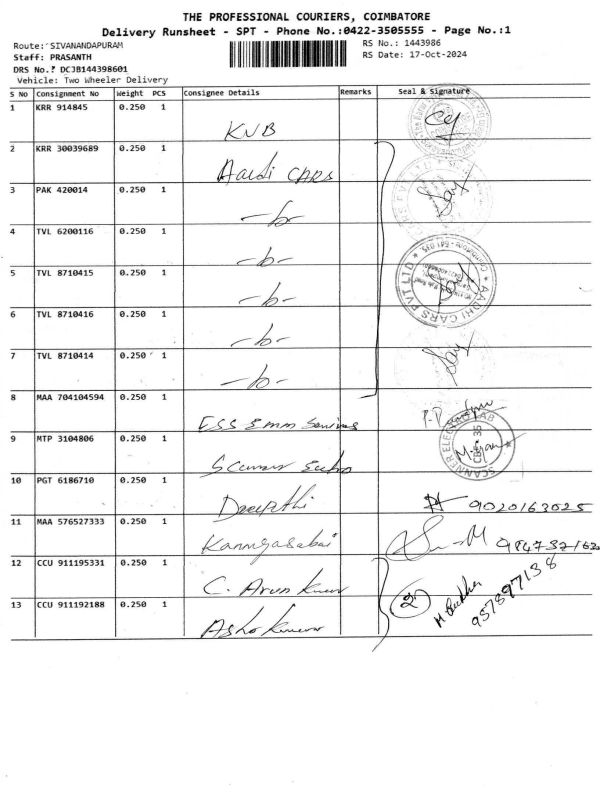 THE PROFESSIONAL COURIERS, COIMBATORE
Delivery Runsheet - SPT - Phone No.:0422-3505555 - Page No.:1
Route: SIVANANDAPURAM
RS No.: 1443986
Staff: PRASANTH
RS Date: 17-Oct-2024
DRS No.: DCJB144398601
Vehicle: Two Wheeler Delivery
S No Consignment No Weight PCS Consignee Details Remarks Seal & Signature
1 KRR 914845 0.250 1 KVB
2 KRR 30039689 0.250 1 Aardi CARS
3 PAK 420014 0.250 1 -b-
4 TVL 6200116 0.250 1 -b-
5 TVL 8710415 0.250 1 -b-
AADHI CARS PVT LTD
6 TVL 8710416 0.250 1 -b-
7 TVL 8710414 0.250 1 -b-
8 MAA 704104594 0.250 1 ESS Emm
9 MTP 3104806 0.250 1
SCANNER ELECTRO LAB
CBE - 35
10 PGT 6186710 0.250 1 Deepthi 9020163025
11 MAA 576527333 0.250 1 Kanngasabai
12 CCU 911195331 0.250 1 C. Arun Kumar
2
13 CCU 911192188 0.250 1 Ashok Kumar